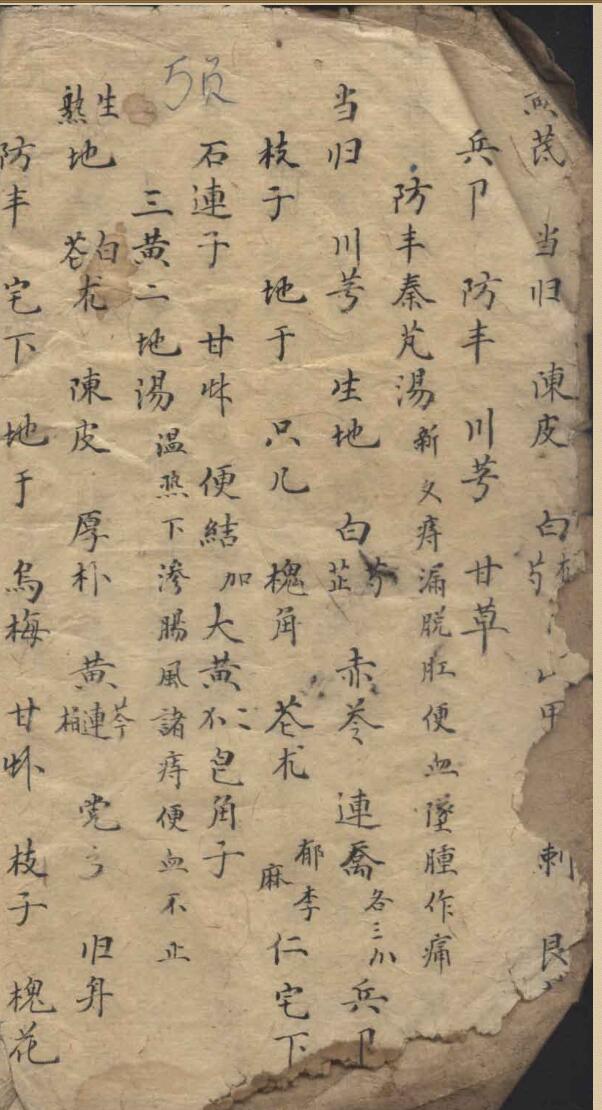 芪 当归 陳皮 白芍 甲 刺
兵卩 防丰 川芎 甘草
防丰秦艽湯 新久痔漏脱肛便血墜腫作痛
当归 川芎 生地 白芷芍 赤苓 連喬各三 兵卩
枝子 地于 只几 槐角 苍朮 郁李麻仁 宅下
石連子 甘艸 便結加大黄 皂角子
三黄二地湯 温热下滲腸風諸痔便血不止
生熟地 白苍朮 陳皮 厚朴 黄芩連柏 党 归身
防丰 宅下 地于 烏梅 甘艸 枝子 槐花